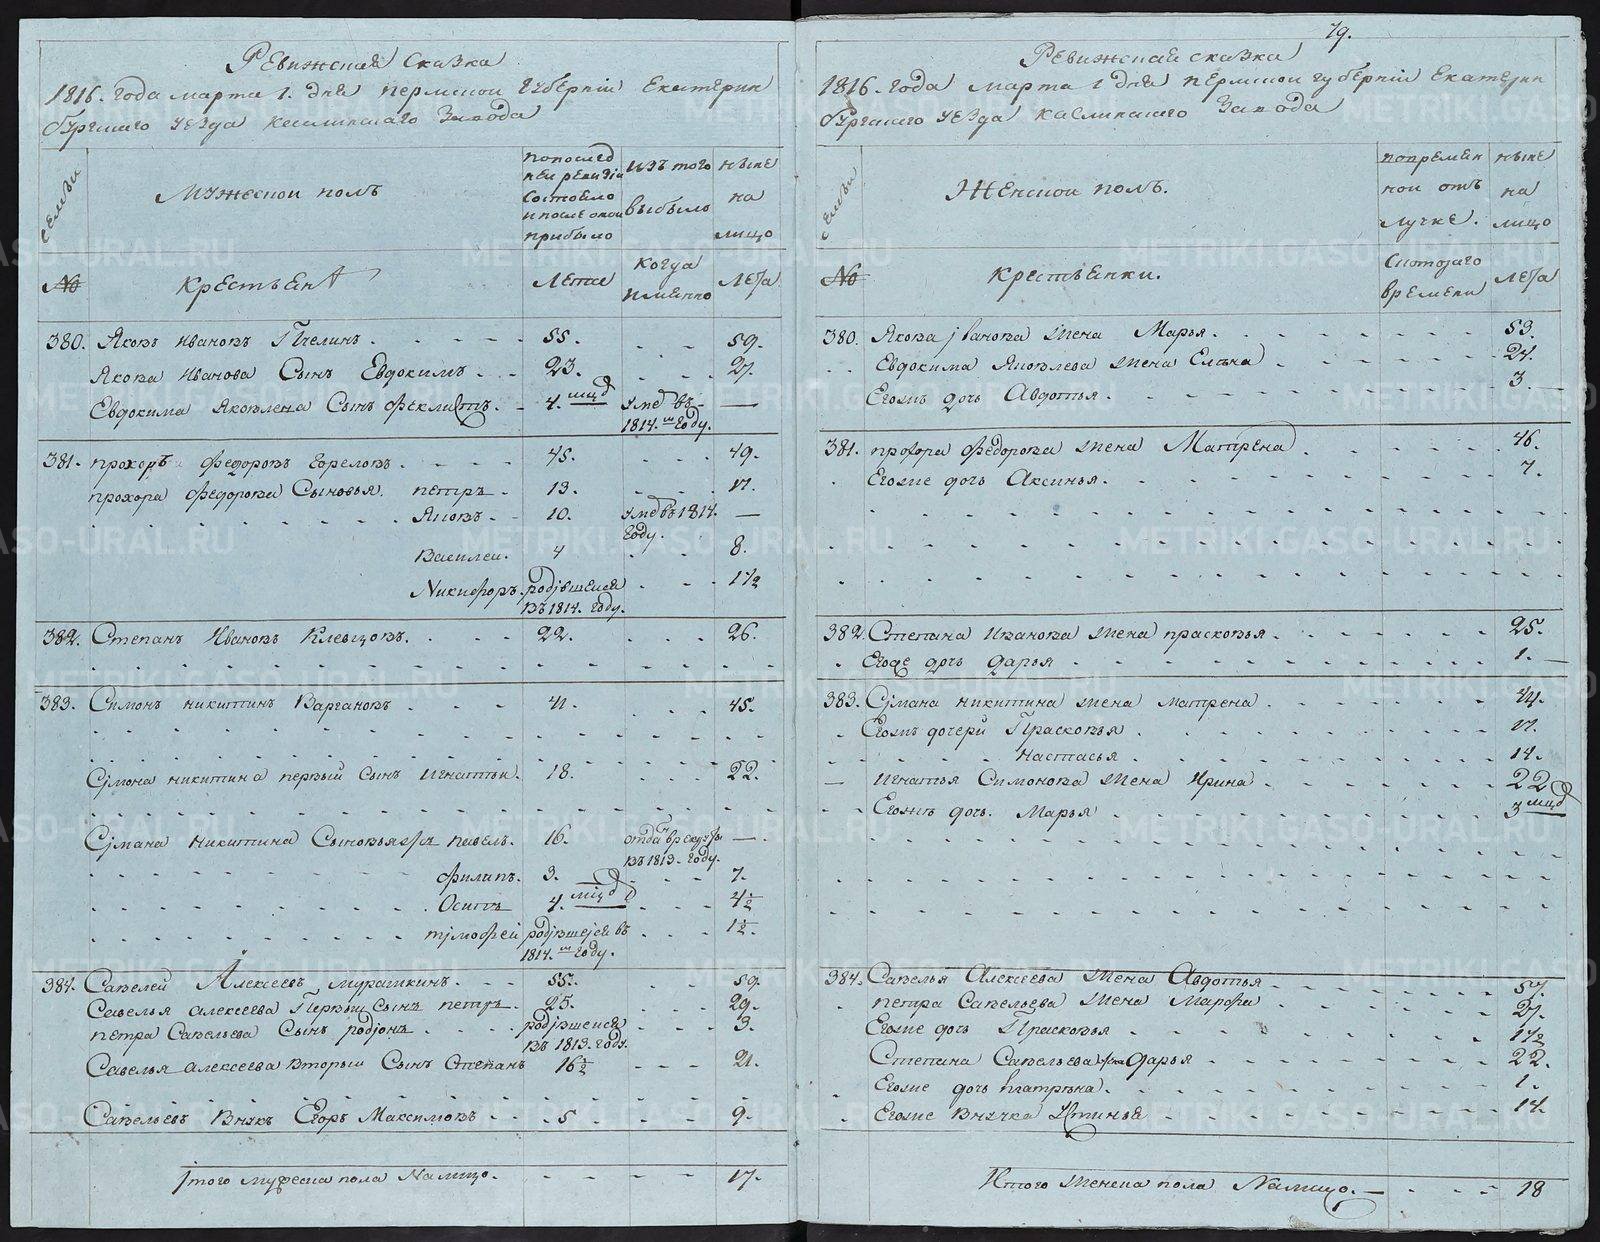 Ревижская сказка
1816. года марта 1. дня пермской Губерніи Екатерин
бургскаго уезда каслинскаго Завода
семьи
Мужеской полъ
попослед
ней ревизіи
состояло
и после оной
прибыло
изъ того
выбыло
ныне
на
лицо
№
крестьяня
Лета
когда
имянно
Лета
380. Яковъ Ивановъ Пчелинъ. 55. 59.
Якова Иванова Сынъ Евдокимъ 23. 27.
Евдокима Яковлева Сынъ Феклистъ. 4. мцд умре въ —
1814. м Году.
381. прохоръ Федоровъ Гореловъ. 45. 49.
прохора Федорова Сыновья. петръ. 13. 17.
Яковъ 10. умре въ 1814. —
Году.
Василеи. 4 8.
Никифоръ. родившейся 1 1/2
въ 1814. Году.
382. Степанъ Ивановъ Клевцовъ. 22. 26.
383. Симонъ никитинъ Вargановъ 41. 45.
Симона никитина первый Сынъ игнатьи. 18. 22.
Симана никитина Сыновья павелъ. 16. отданъ в рекруты —
въ 1813. Году.
филипъ. 3. 7.
Осипъ 4. мцд 4 1/2
тимофеи родившейся въ 1 1/2.
1814. м Году.
384. Савелей Алексеевъ мурашкинъ. 55. 59.
Савелья алексеева Первый Сынъ петръ 25. 29.
петра Савельева Сынъ родіонъ родившейся 3.
въ 1813. Году.
Савелья алексеева вторый Сынъ Степанъ 16 1/2 21.
Савельевъ Внукъ Егоръ Максимовъ 5 9.
Итого мужеска пола Налицо. 17.
79.
Ревижская сказка
1816. года марта 1 дня пермской губерніи Екатерин
бургскаго уезда каслинскаго Завода
семьи
Женской полъ.
попремен
ной отъ
лучке.
ныне
на
лицо
№
крестьянки.
Скотораго
времени
лета
380. Якова Іванова жена Марья. 53.
Евдокима Яковлева жена Елена 24.
Егожъ дочь Авдотья. 3. —
381. прохора Федорова жена Матрена 46.
Егоже дочь Аксинья. 7.
382. Степана Иванова жена прасковья. 25.
Егоже дочь дарья 1. —
383. Симана никитина жена матрена 44.
Егожъ дочери Прасковья 17.
Настасья 14.
— Игнатья Симонова жена Ирина 22
Егожъ дочь. Марья 3 мцд
384. Савелья Алексеева жена Авдотья 57.
петра Савельева жена Марфа 27.
Егоже дочь Прасковья 1 1/2
Степана Савельева жена дарья 22.
Егоже дочь матрена. 1.
Егоже Внучка Устинья 14.
Итого женска пола Налицо. — 18